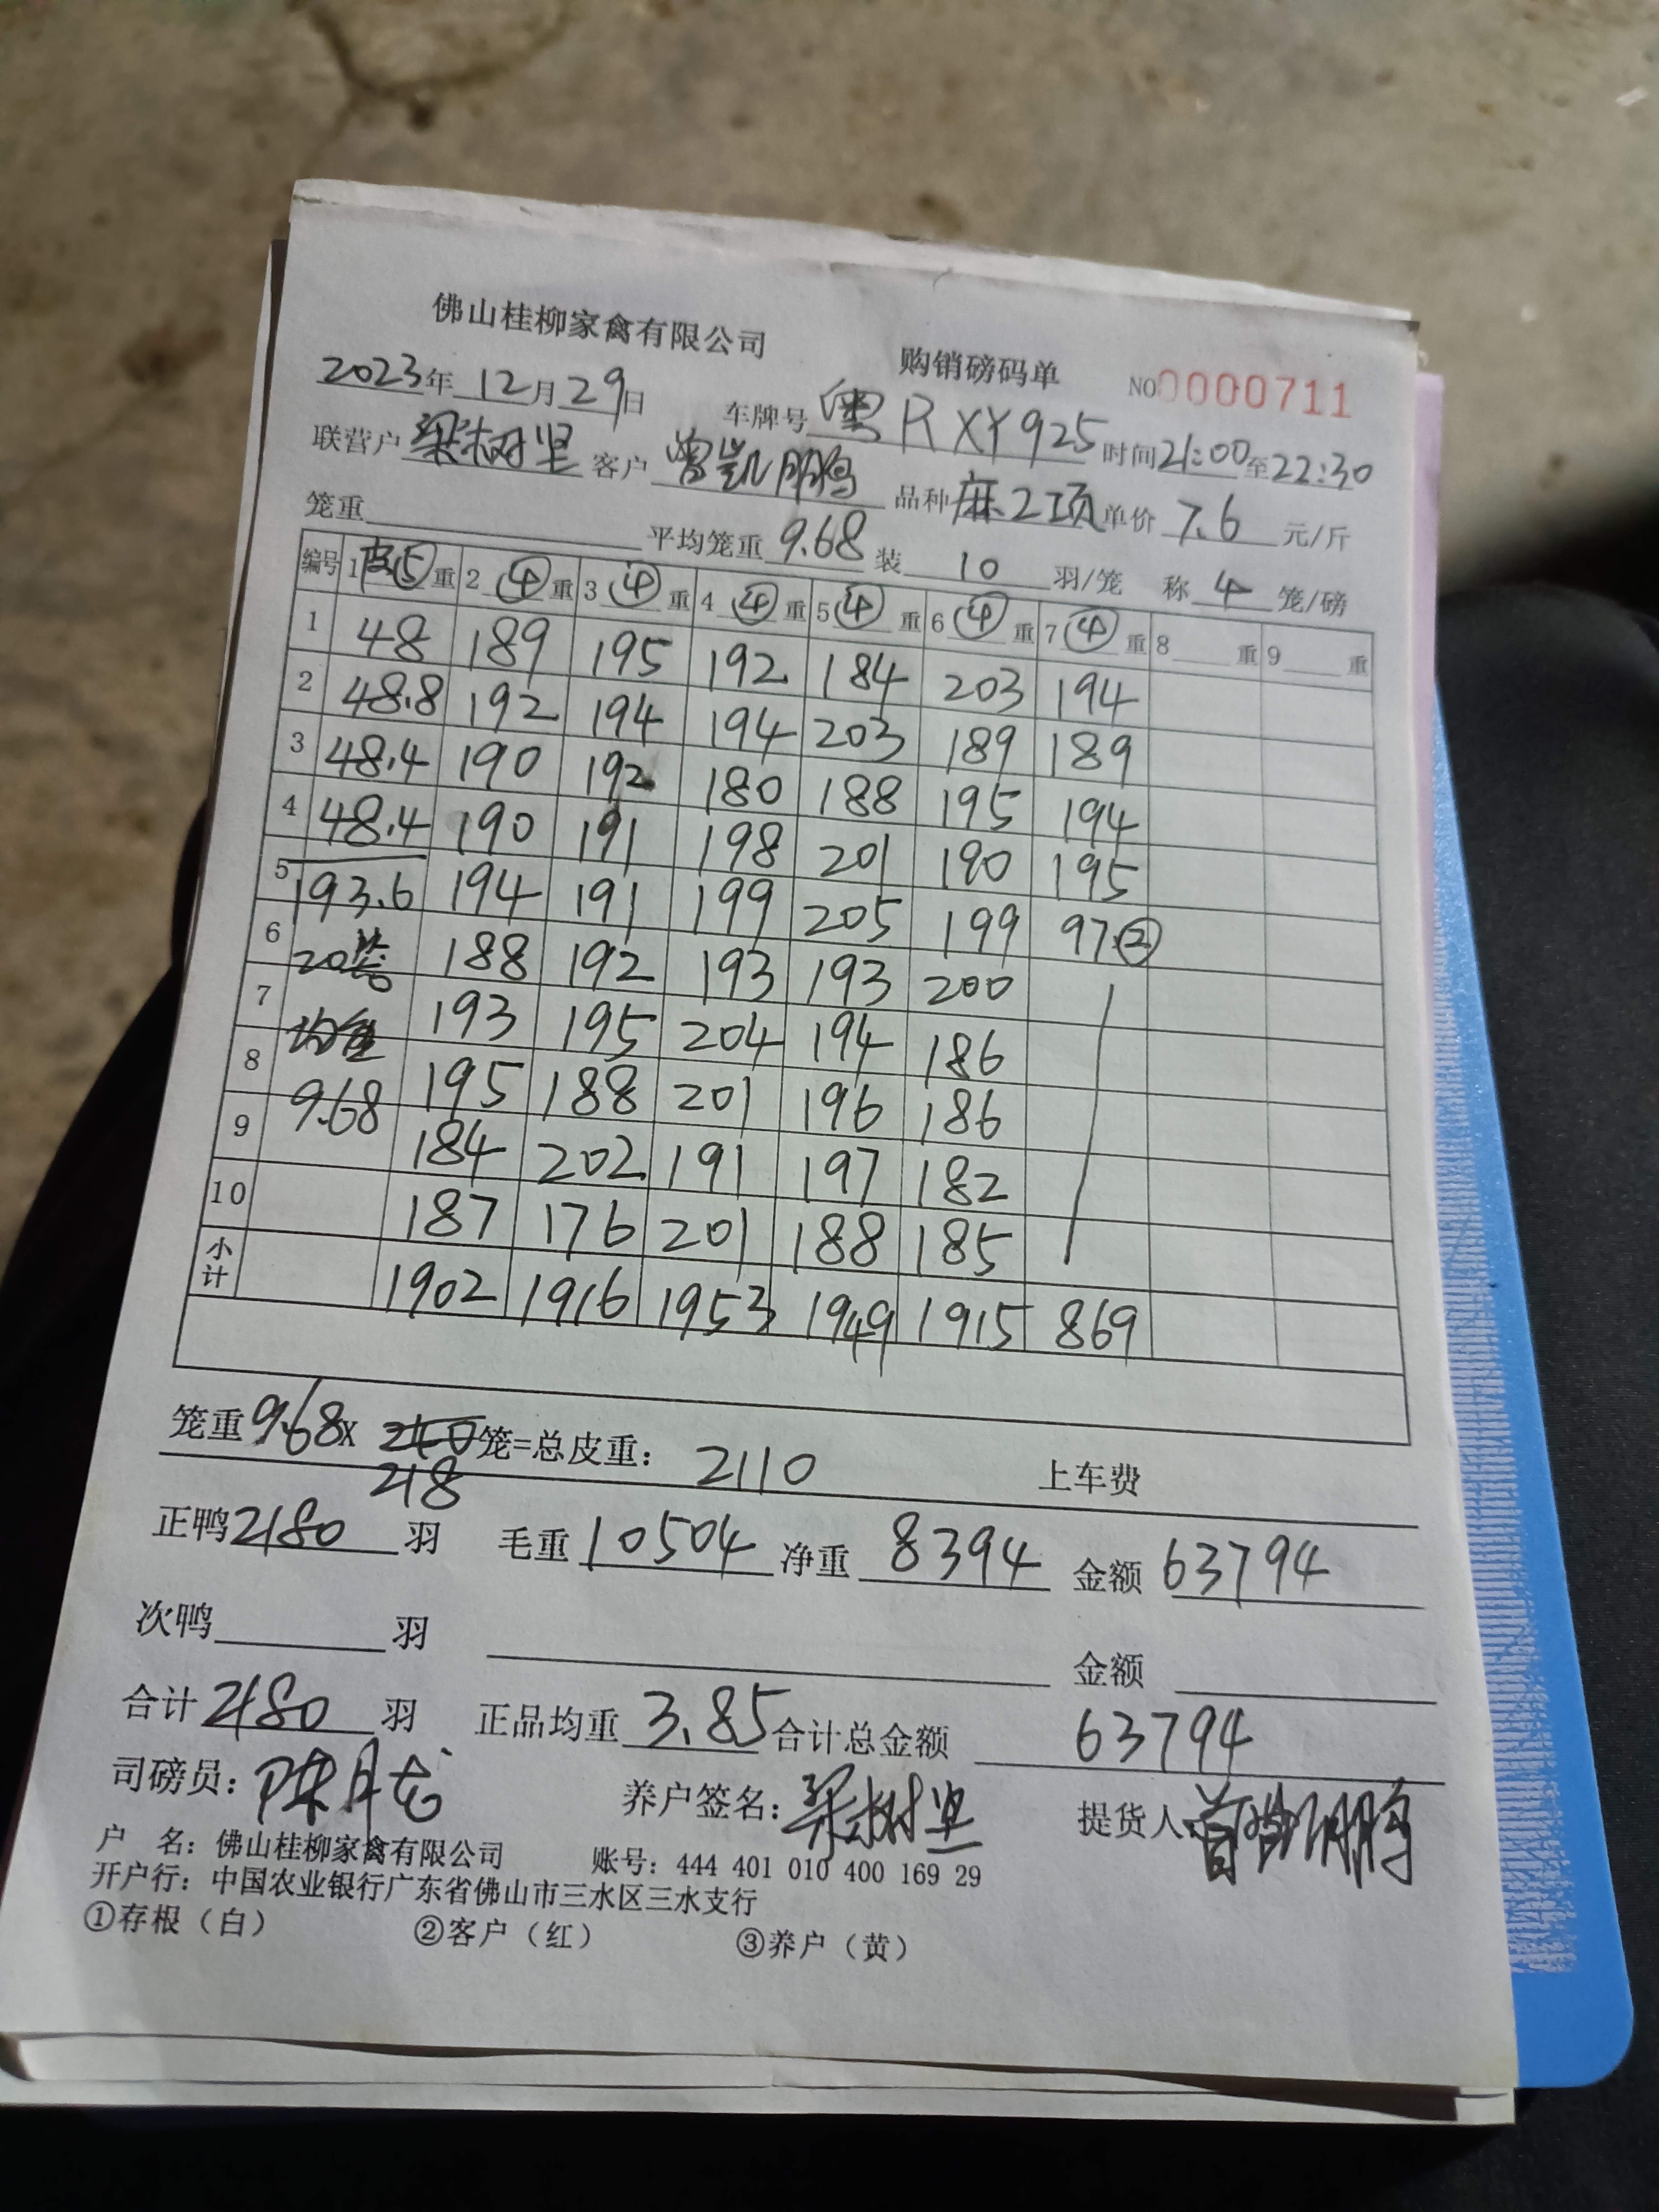 佛山桂柳家禽有限公司 购销磅码单 NO0000711
2023年12月29日 车牌号粤RXY925 时间21:00至22:30
联营户梁树坚 客户曾凯鹏 品种麻2项 单价7.6元/斤
笼重 平均笼重9.68 装10羽/笼 称4笼/磅
编号 1皮⑤重 2④重 3④重 4④重 5④重 6④重 7④重 8重 9重
1 48 189 195 192 184 203 194
2 48.8 192 194 194 203 189 189
3 48.4 190 192 180 188 195 194
4 48.4 190 191 198 201 190 195
5 193.6 194 191 199 205 199 97②
6 20笼 188 192 193 193 200
7 均重 193 195 204 194 186
8 9.68 195 188 201 196 186
9 184 202 191 197 182
10 187 176 201 188 185
小计 1902 1916 1953 1949 1915 869
笼重9.68X 210笼=总皮重: 2110 上车费
218
正鸭2180羽 毛重10504 净重8394 金额63794
次鸭 羽 金额
合计2180羽 正品均重3.85 合计总金额63794
司磅员: 陈 养户签名: 梁树坚 提货人 曾凯鹏
户 名: 佛山桂柳家禽有限公司 账号: 444 401 010 400 169 29
开户行: 中国农业银行广东省佛山市三水区三水支行
①存根(白) ②客户(红) ③养户(黄)